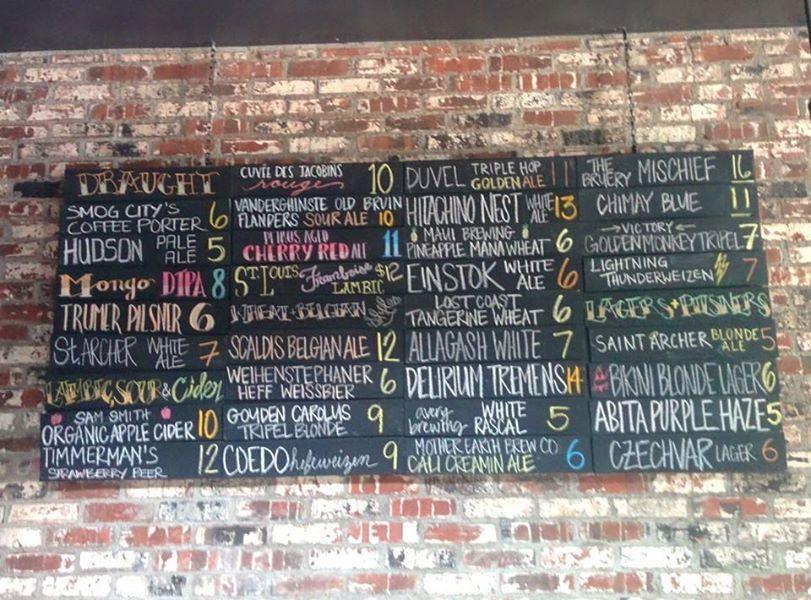 DRAUGHT
SMOG CITY'S
COFFEE PORTER 6
HUDSON PALE ALE 5
MONGO DIPA 8
TRUMER PILSNER 6
ST. ARCHER WHITE ALE 7
LAMBIC, SOUR & Cider
SAM SMITH
ORGANIC APPLE CIDER 10
TIMMERMAN'S
STRAWBERRY BEER 12
CUVÉE DES JACOBINS
rouge 10
VANDERGHINSTE OLD BRUIN
FLANDERS SOUR ALE 10
CHERRY RED ALE 11
ST. LOUIS Framboise
LAMBIC $12
WHEAT + BELGIAN
SCALDIS BELGIAN ALE 12
WEIHENSTEPHANER
HEFF WEISSBIER 6
GOUDEN CAROLUS
TRIPEL BLONDE 9
COEDO hefeweizen 9
DUVEL TRIPLE HOP
GOLDEN ALE 11
HITACHINO NEST WHITE ALE 13
MAUI BREWING
PINEAPPLE MANA WHEAT 6
EINSTOK WHITE ALE 6
LOST COAST
TANGERINE WHEAT 6
ALLAGASH WHITE 7
DELIRIUM TREMENS 14
avery brewing WHITE RASCAL 5
MOTHER EARTH BREW CO
CALI CREAMIN ALE 6
THE BRUERY MISCHIEF 16
CHIMAY BLUE 11
VICTORY
GOLDEN MONKEY TRIPEL 7
LIGHTNING
THUNDERWEIZEN 7
LAGERS + PILSNERS
SAINT ARCHER BLONDE ALE 5
BIKINI BLONDE LAGER 6
ABITA PURPLE HAZE 5
CZECHVAR LAGER 6